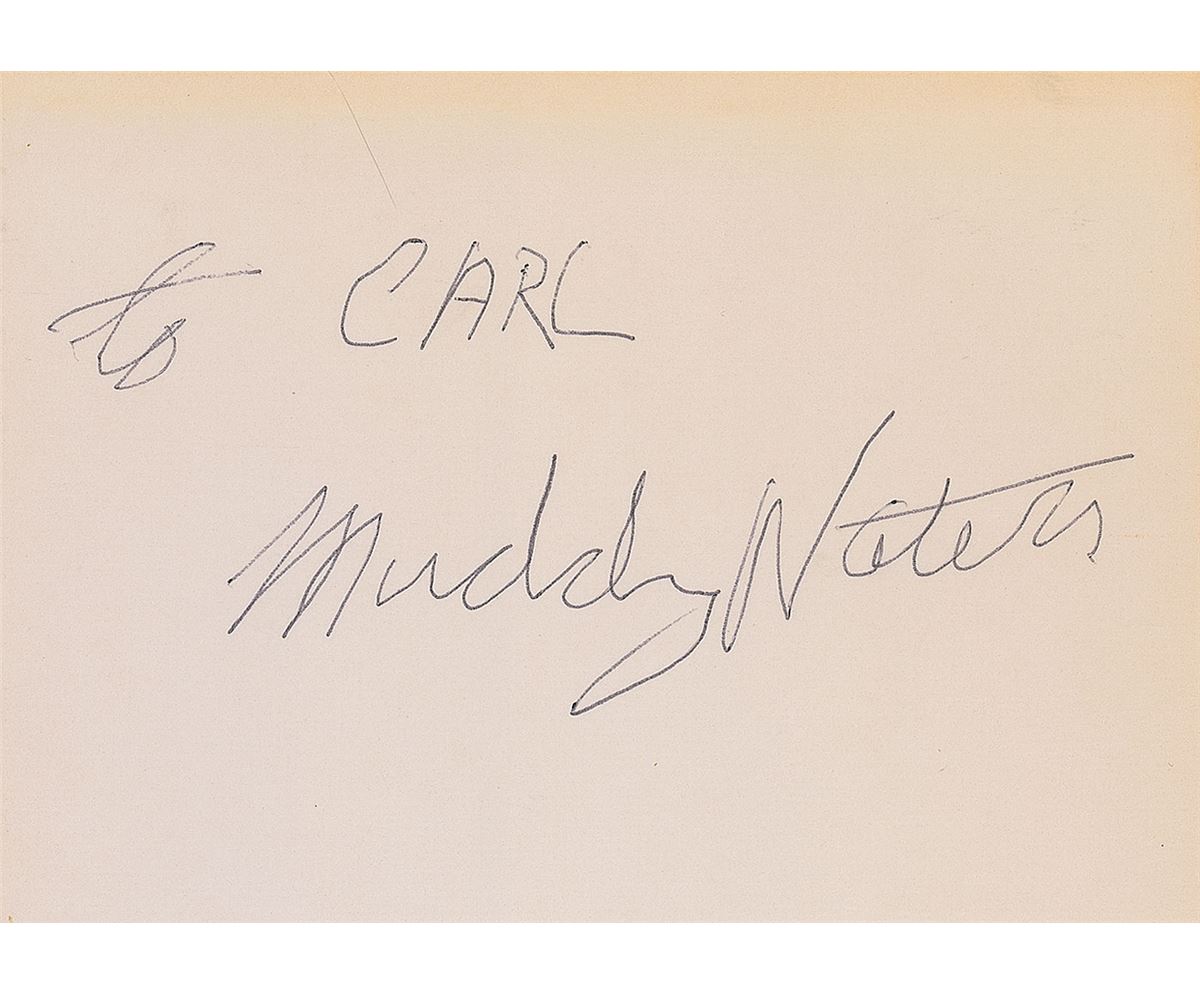 to CARL
Muddy Waters